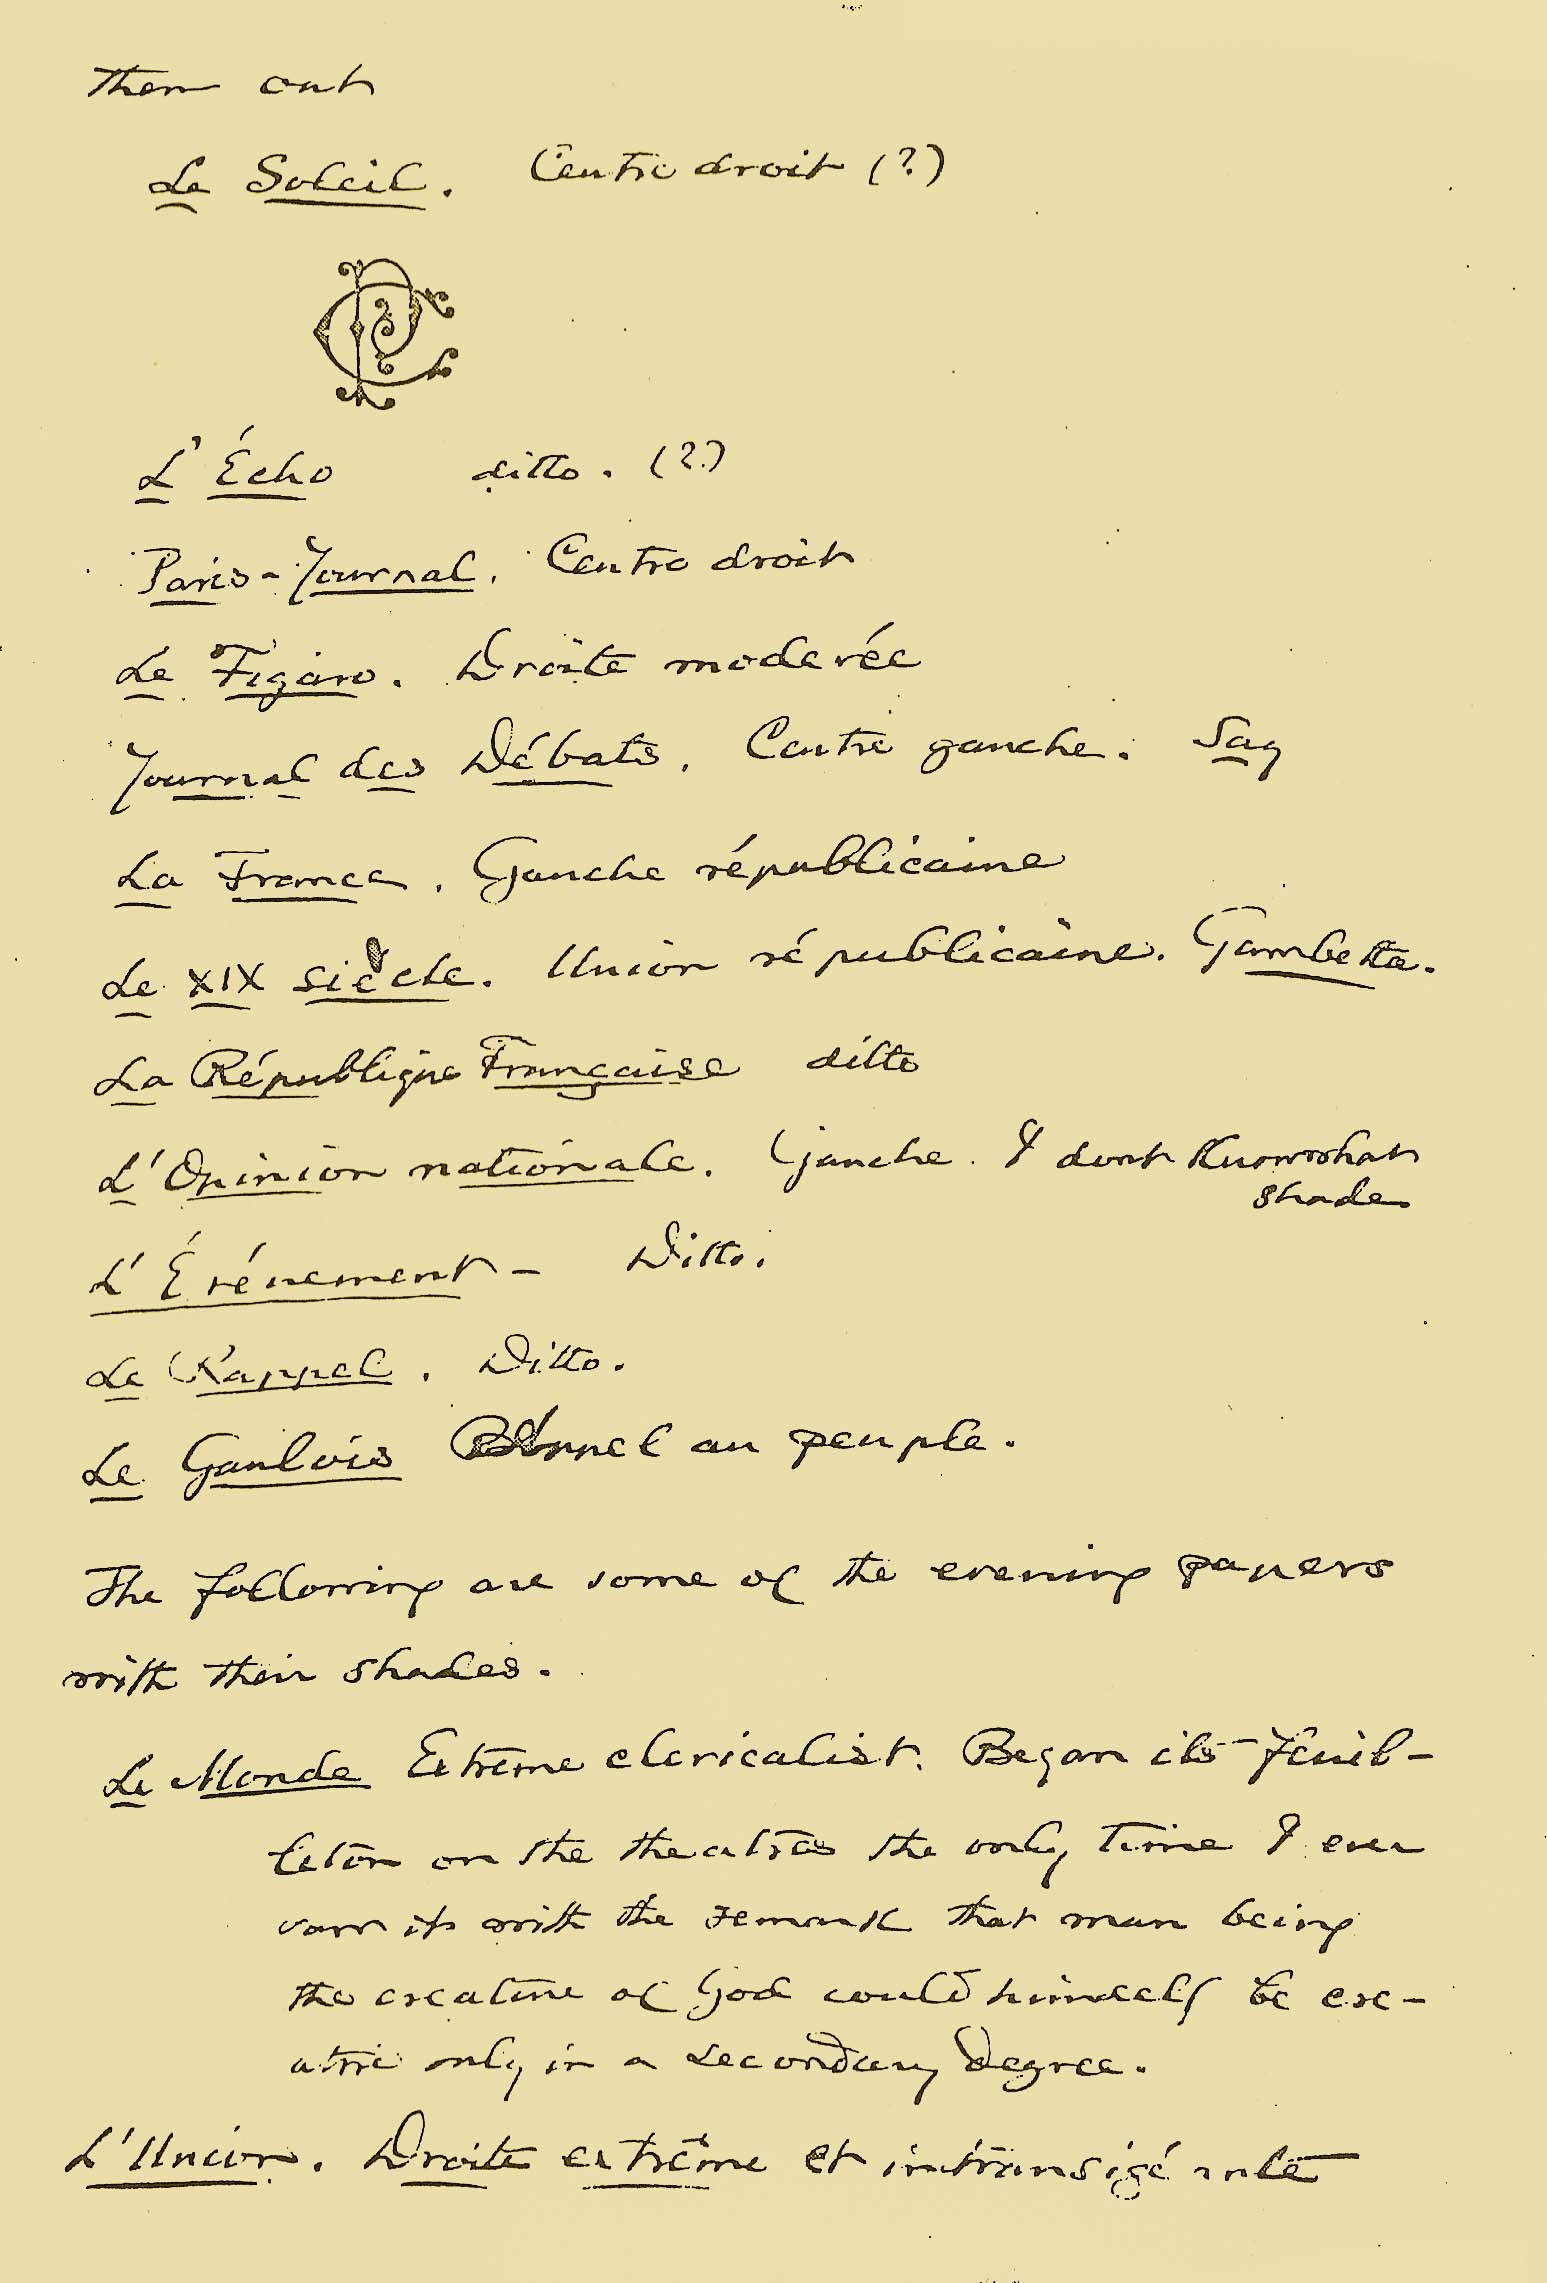 them out
Le Soleil. Centre droit (?)
L'Écho ditto. (?)
Paris-Journal. Centre droit
Le Figaro. Droite moderée
Journal des Débats. Centre gauche. Say
La France. Gauche républicaine
Le XIX siècle. Union républicaine. Gambetta.
La République Française ditto
L'Opinion nationale. Gauche. I dont know what
shade
L'Événement – Ditto.
Le Rappel. Ditto.
Le Gaulois au peuple.
The following are some of the evening papers
with their shades.
Le Monde Extrême clericalist. Began its feuil-
leton on the theatres the only time I ever
saw it with the remark that man being
the creature of God could himself be cre-
atric only in a secondary degree.
L'Union. Droite extrême et intransigéante